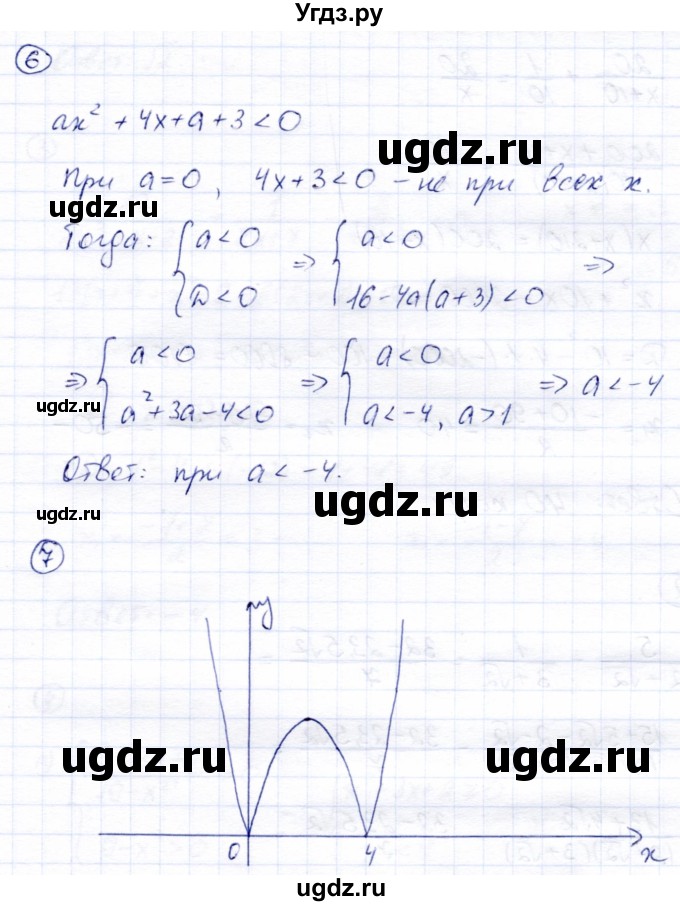 Угдз.ру
6
ax² + 4x + a + 3 < 0
ugdz.ru
При a = 0, 4x + 3 < 0 – не при всех x.
ugdz.ru
Тогда: { a < 0 ⇒ { a < 0
D < 0 16 - 4a(a + 3) < 0 ⇒
ugdz.ru
⇒ { a < 0 ⇒ { a < 0 ⇒ a < -4
a² + 3a - 4 < 0 a < -4, a > 1
ugdz.ru
Ответ: при a < -4.
ugdz.ru
ugdz.ru
7
y
ugdz.ru
ugdz.ru
0 4 x
ugdz.ru